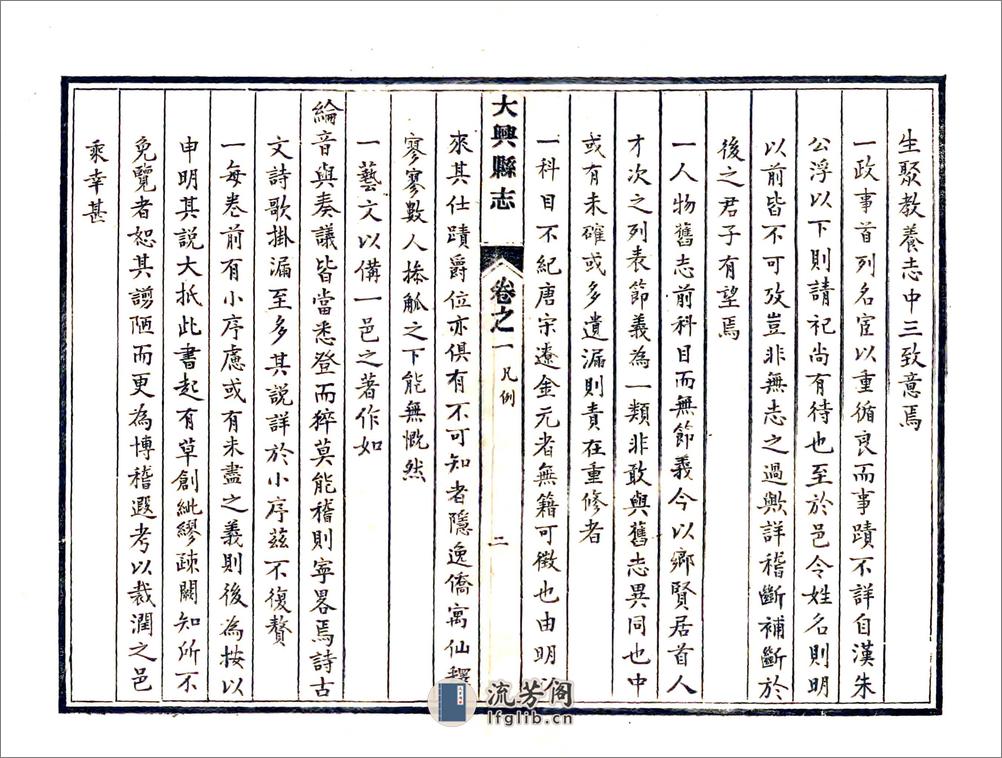 生聚教養志中三致意焉
一政事首列名宦以重循良而事蹟不詳自漢朱
公浮以下則請祀尚有待也至於邑令姓名則明
以前皆不可攷豈非無志之過歟詳稽斷補斷於
後之君子有望焉
一人物舊志前科目而無節義今以鄉賢居首人
才次之列表節義為一類非敢與舊志異同也中
或有未確或多遺漏則責在重修者
一科目不紀唐宋遼金元者無籍可徵也由明以
大興縣志 卷之一 凡例 二
來其仕蹟爵位亦俱有不可知者隱逸僑寓仙釋
寥寥數人搽觚之下能無慨然
一藝文以備一邑之著作如
綸音與奏議皆當悉登而猝莫能稽則寧畧焉詩古
文詩歌掛漏至多其說詳於小序茲不復贅
一每卷前有小序慮或有未盡之義則後為按以
申明其說大抵此書起有草創紕繆疎闕知所不
免覽者恕其謭陋而更為博稽遐考以裁潤之邑
乘幸甚
流芳阁
lfglib.cn